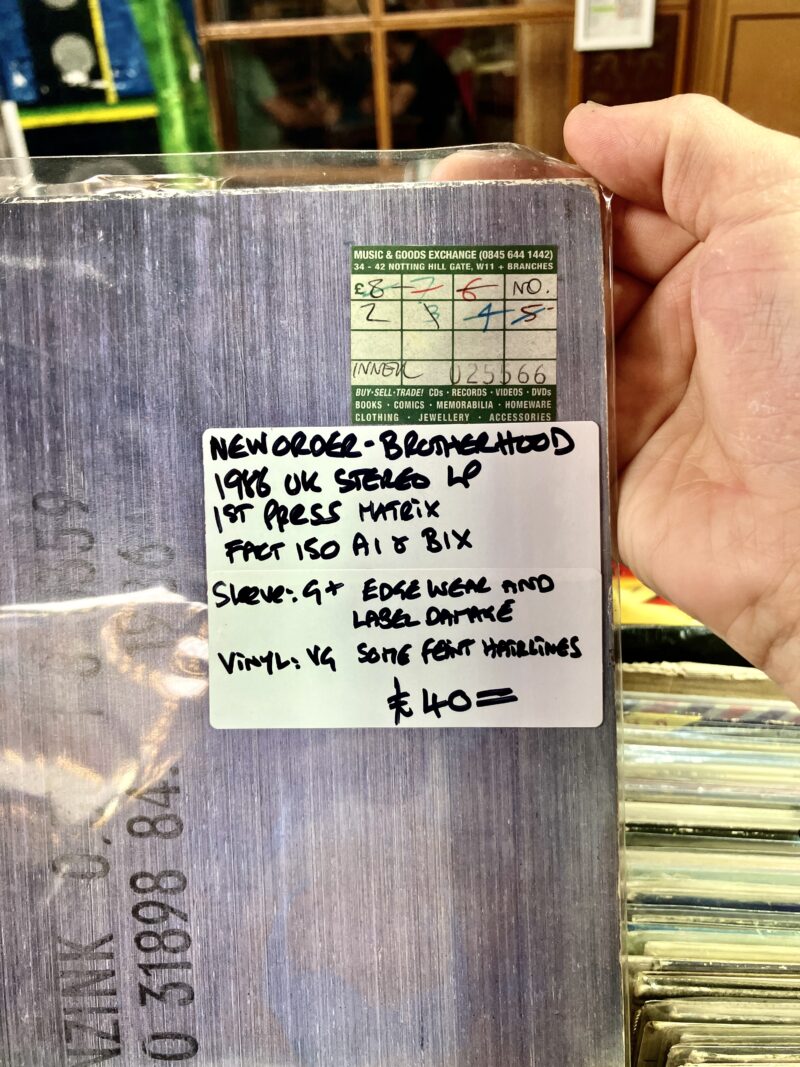 MUSIC & GOODS EXCHANGE (0845 644 1442)
34 - 42 NOTTING HILL GATE, W11 + BRANCHES
£8 7 6 NO.
2 3 4 5
INNER 025566
BUY·SELL·TRADE! CDs · RECORDS · VIDEOS · DVDs
BOOKS · COMICS · MEMORABILIA · HOMEWARE
CLOTHING · JEWELLERY · ACCESSORIES
NEW ORDER - BROTHERHOOD
1986 UK STEREO LP
1ST PRESS MATRIX
FACT 150 A1 & B1X
Sleeve: G+ EDGE WEAR AND
LABEL DAMAGE
VINYL: VG SOME FEINT HAIRLINES
£40=
NZINK 0,
0 31898 84.